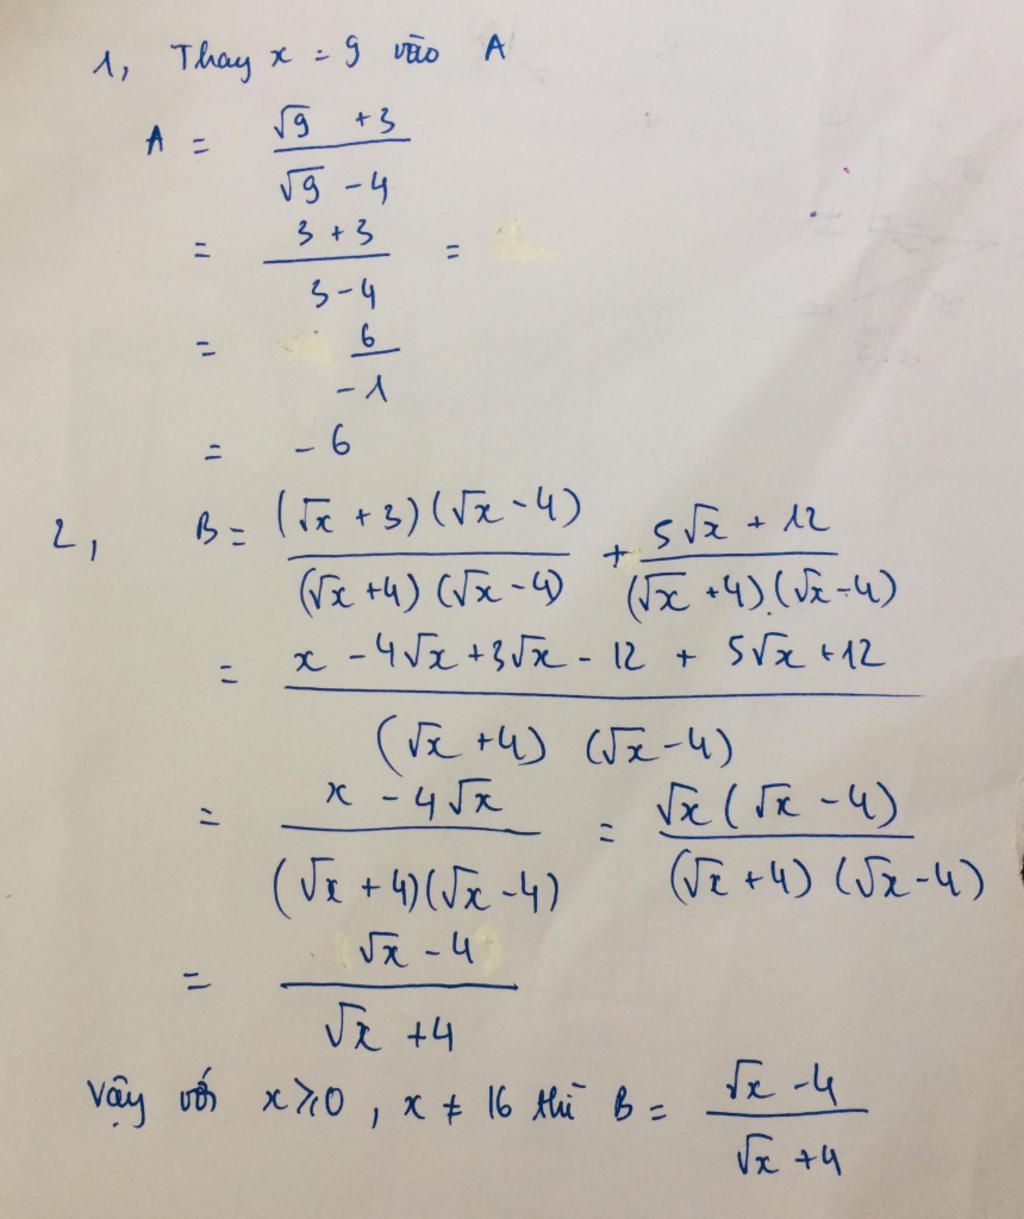 1, Thay x = 9 vào A
A = (√9 + 3)/(√9 - 4)
= (3 + 3)/(3 - 4) =
= 6/(-1)
= - 6
2, B = ((√x + 3)(√x - 4))/((√x + 4)(√x - 4)) + (5√x + 12)/((√x + 4).(√x - 4))
= (x - 4√x + 3√x - 12 + 5√x + 12)/((√x + 4)(√x - 4))
= (x - 4√x)/((√x + 4)(√x - 4)) = (√x(√x - 4))/((√x + 4)(√x - 4))
= (√x - 4)/(√x + 4)
Vậy với x ⩾ 0, x ≠ 16 thì B = (√x - 4)/(√x + 4)